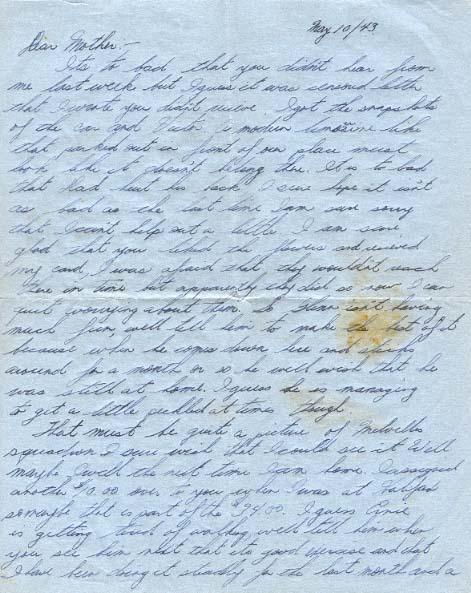 May 10/43
Dear Mother:-
Its to bad that you didn't hear from
me last week but I guess it was censored letter
that I wrote you didn't recieve. I got the snapshots
of the car and Victor. A modern limosine like
that parked out in front of our place must
look like it doesn't belong there. It is to bad
that Dad hurt his back I sure hope it isn't
as bad as the last time I am sure sorry
that I can't help out a little. I am sure
glad that you liked the flowers and recieved
my card, I was afraid that they wouldn't reach
there in time but apparently they did so now I can
quit worrying about them. So Glenn isn't having
much fun, well tell him to make the best of it
because when he comes down here and
around for a month or so he will wish that he
was still at home. I guess he is managing
to get a little pickled at times though
That must be quite a picture of Melvilles
squadron I sure wish that I could see it. Well
maybe I will the next time I am home. I assigned
another $10.00 over to you when I was at Halifax
so maybe that is part of the $94.00. I guess Ernie
is getting tired of walking, well tell him when
you see him next that its good exercise and that
I have been doing it steadily for the last month and a